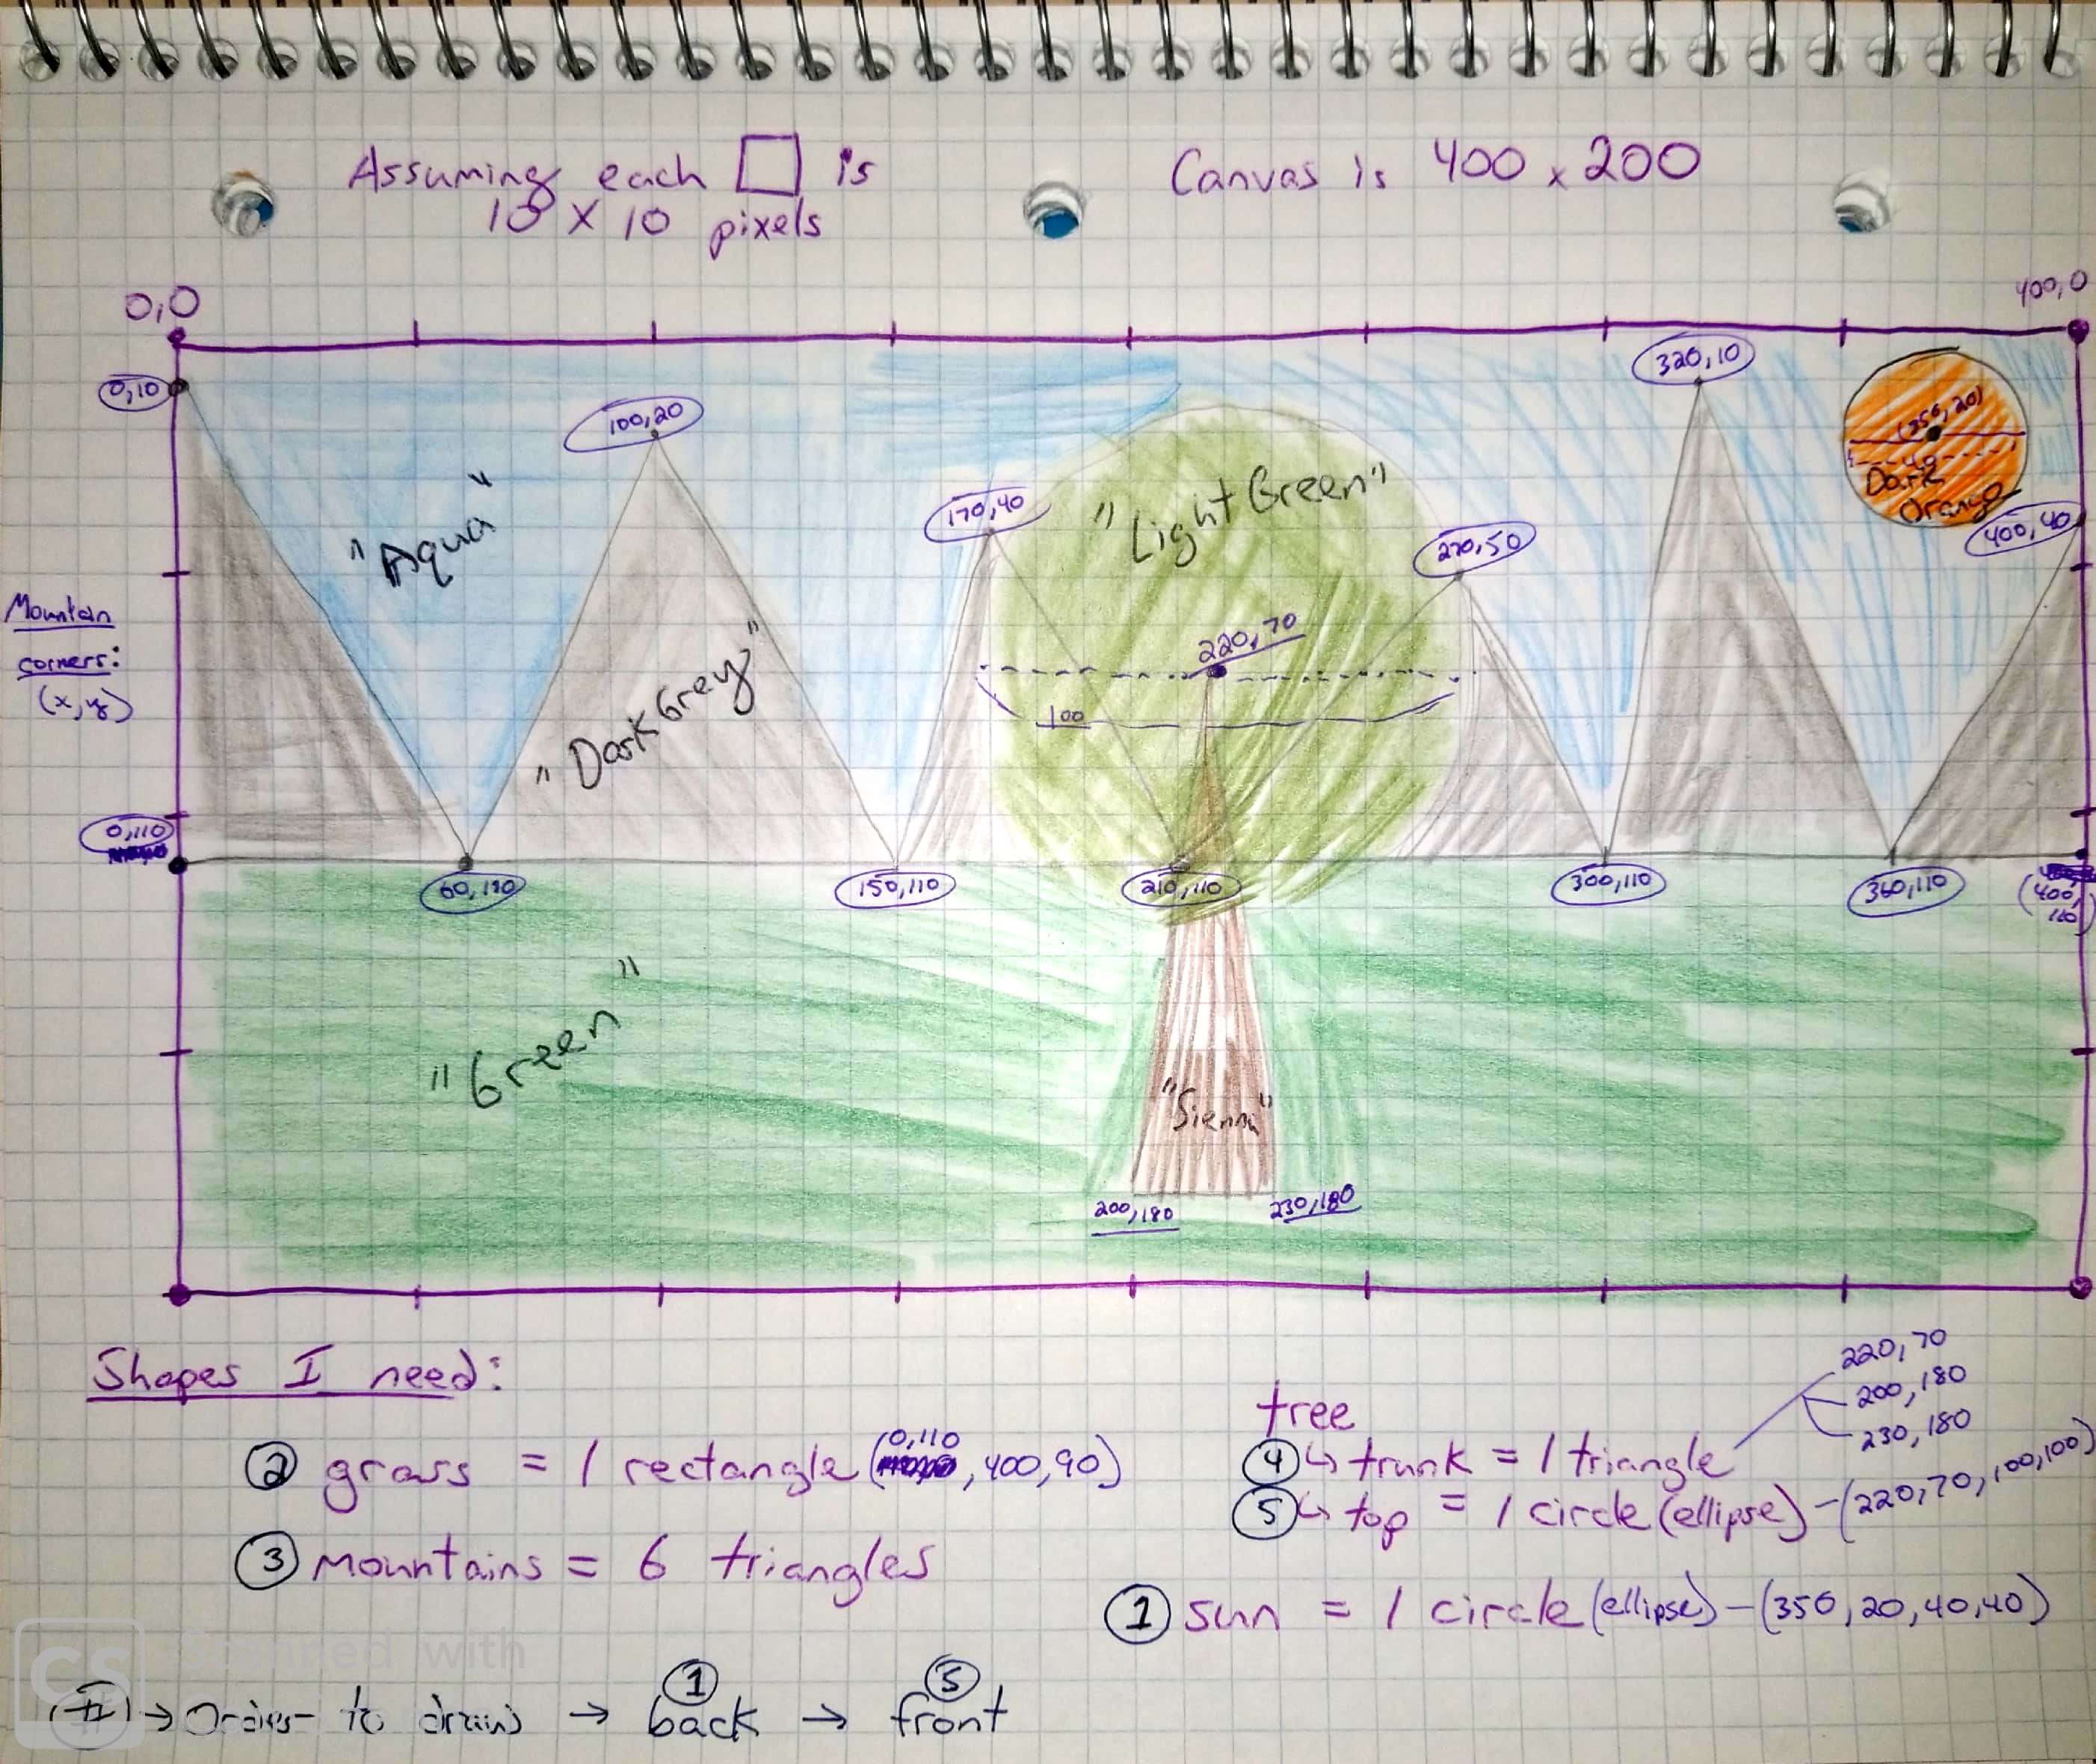 Assuming each □ is
10 x 10 pixels
Canvas is 400 x 200
0,0
400,0
0,10
100,20
170,40
320,10
(350,20)
40
Dark
Orange
400,40
270,50
"Aqua"
"LightGreen"
220,70
100
"DarkGrey"
Mountain
corners:
(x,y)
0,110
60,110
150,110
210,110
300,110
360,110
(400,
110)
"Green"
"Sienna"
200,180
230,180
Shapes I need:
② grass = 1 rectangle (0,110, 400, 90)
③ mountains = 6 triangles
tree
④↳ trunk = 1 triangle
220,70
200,180
230,180
⑤↳ top = 1 circle (ellipse) - (220,70,100,100)
① sun = 1 circle (ellipse) - (350, 20, 40, 40)
(#) → Order to draw → ① back → ⑤ front
CS
Scanned with